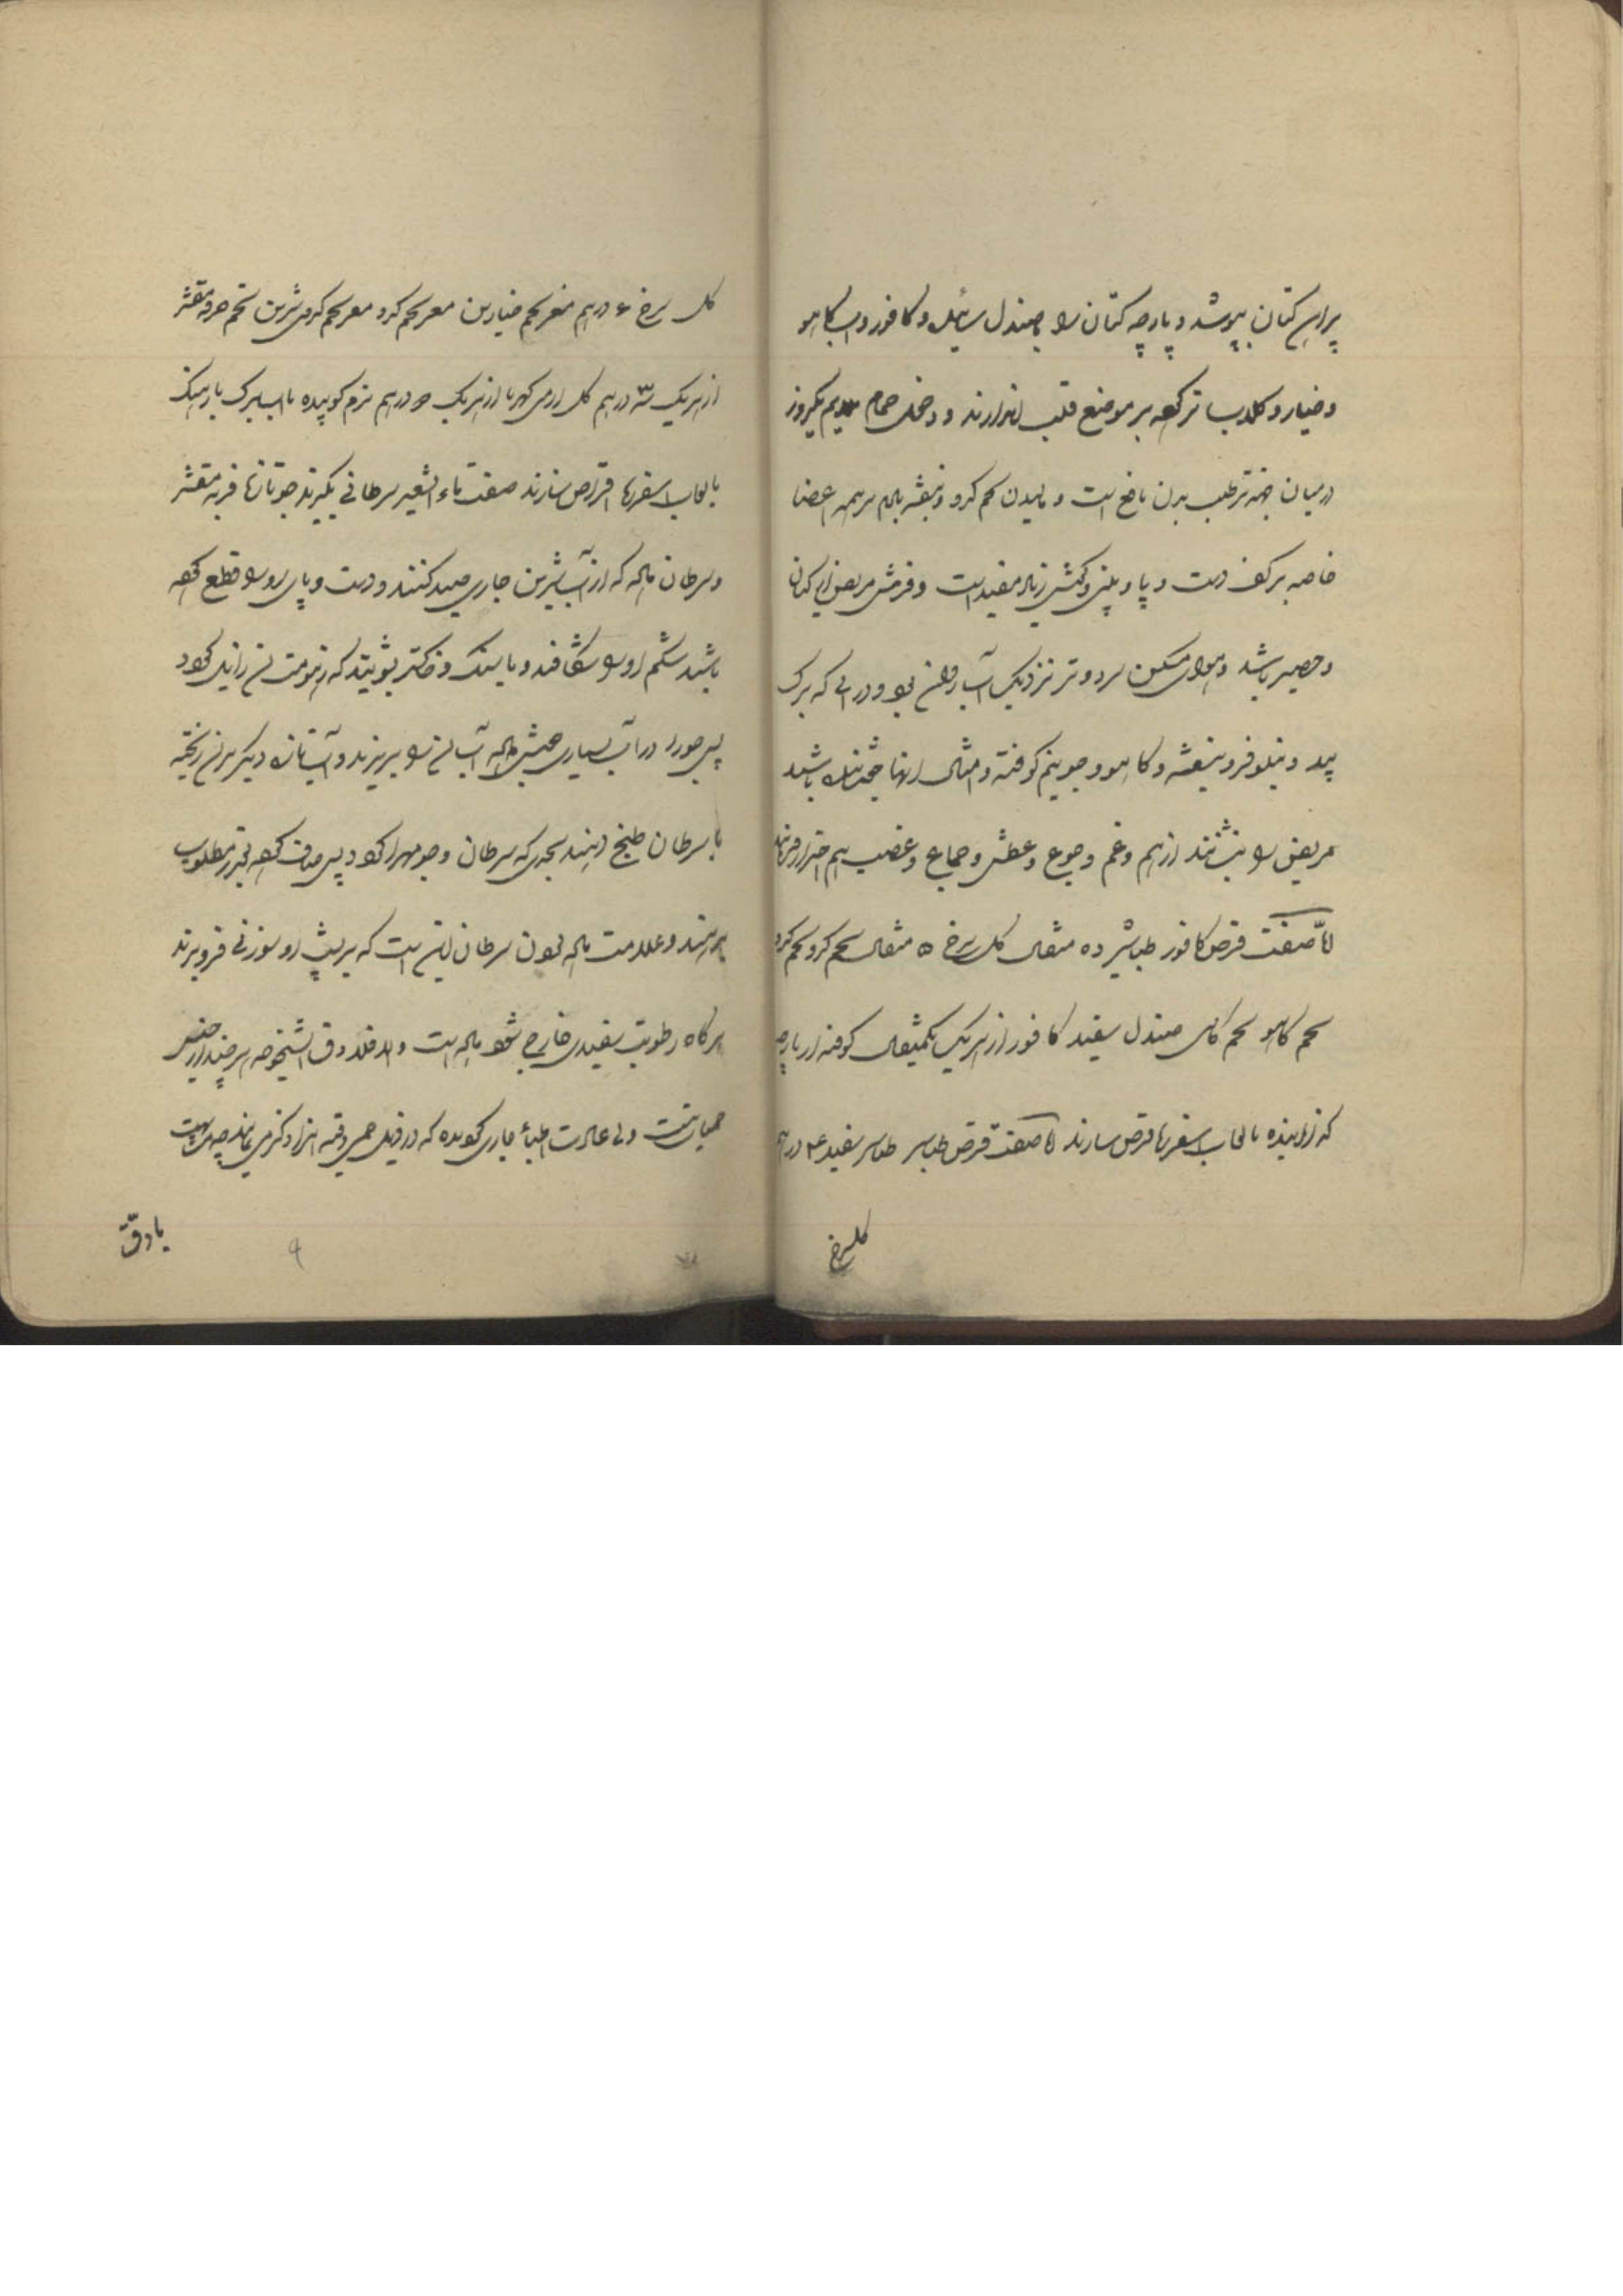 پیراهن کتان بپوشد و پارچه کتان را بصندل سائیده و کافور و آب کاهو
و خیار و گلاب تر کرده بر موضع قلب گذارند و دخول حمام یکروز
درمیان جهة ترطیب بدن نافع است و مالیدن تخم کدو و بنفشه بر همه اعضا
خاصه بر کف دست و پا و بینی و کش زیاد مفید است و فرش مریض از کتان
و حصیر باشد و هوای مسکن سرد و تر نزدیک آب روان بود و در آبی که برگ
بید و نیلوفر و بنفشه و کاهو و جو نیم کوفته و امثال اینها باشد
مریض را بنشانند از هم و غم و جوع و عطش و جماع و غضب هم احتراز فرمایند
امّا صفت قرص کافور طباشیر ده مثقال گل سرخ ۵ مثقال تخم کدو تخم
تخم کاهو تخم کاسنی صندل سفید کافور از هر یک یکمثقال کوفته از پارچه
گذرانیده با لعاب اسفرزه قرص سازند امّا صفت قرص طباشیر طباشیر سفید ۴ درهم
گلسرخ
گل سرخ ۶ درهم مغز تخم خیارین مغز تخم کدو مغز تخم کدوی شیرین تخم خرفه مقشر
از هر یک سه درهم گل ارمنی کهربا از هر یک درهم نرم کوبیده با آب برگ بارهنگ
با لعاب اسفرزه اقراص سازند صفت ماء الشعیر سرطانی بگیرند جو تازه فربه مقشر
و سرطان ماده که از آب شیرین جاری صید کنند و دست و پای او را قطع کرده
باشند شکم او را بشکافند و با نمک و خاکستر بشویند که زهومت آن زایل گردد
پس جو را در آب بسیاری جوشی داده آب آن را بریزند و آب تازه دیگر بر آن ریخته
با سرطان طبخ دهند بحدی که سرطان و جو مهرا گردد پس صاف کرده بقدر مطلوب
بدهند و علامت ماده بودن سرطان این است که بر پشت او سوزنی فرو برند
هرگاه رطوبت سفیدی خارج شود ماده است و اما دق الشیخوخه هر چند از جنس
حمیات نیست ولی عادت اطباء جاری گردیده که در ذیل حمی دقیه او را ذکر می نمایند چه مشابهت
با دق
۹